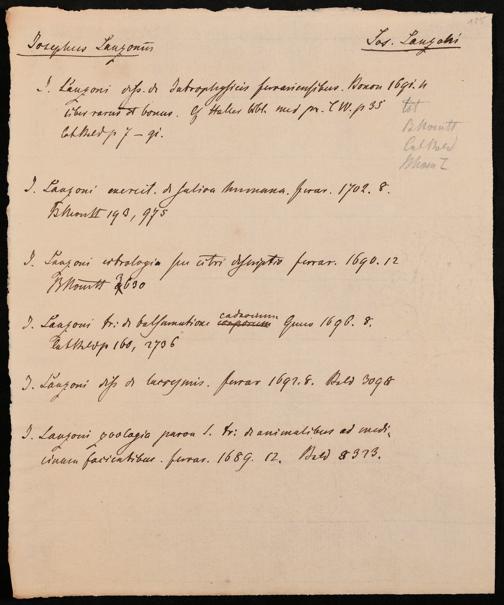 185
Josephus Lanzonius
Jos. Lanzoni
J. Lanzoni diss. de Iatrophysicis ferrariensibus. Bonon 1691. 4
liber rarus et bonus. Cf Haller bibl. med pr. T. IV. p 35
Cat Bald p 7 – 91.
tot
B Moutt
Cat Bald
J. Lanzoni exercit. de saliva humana. ferrar. 1702. 8.
B Moutt 193, 975
J. Lanzoni citrologia seu citri descriptio ferrar. 1690. 12
B Moutt 630
J. Lanzoni tr: de balsamatione cadaverum Genev 1696. 8.
Cat Bald p 160, 2736
J. Lanzoni diss de lacrymis. ferrar 1692. 8. Bald 3098
J. Lanzoni zoologia parva s. tr: de animalibus ad medi-
cinam facientibus. ferrar. 1689. 12. Bald 8373.